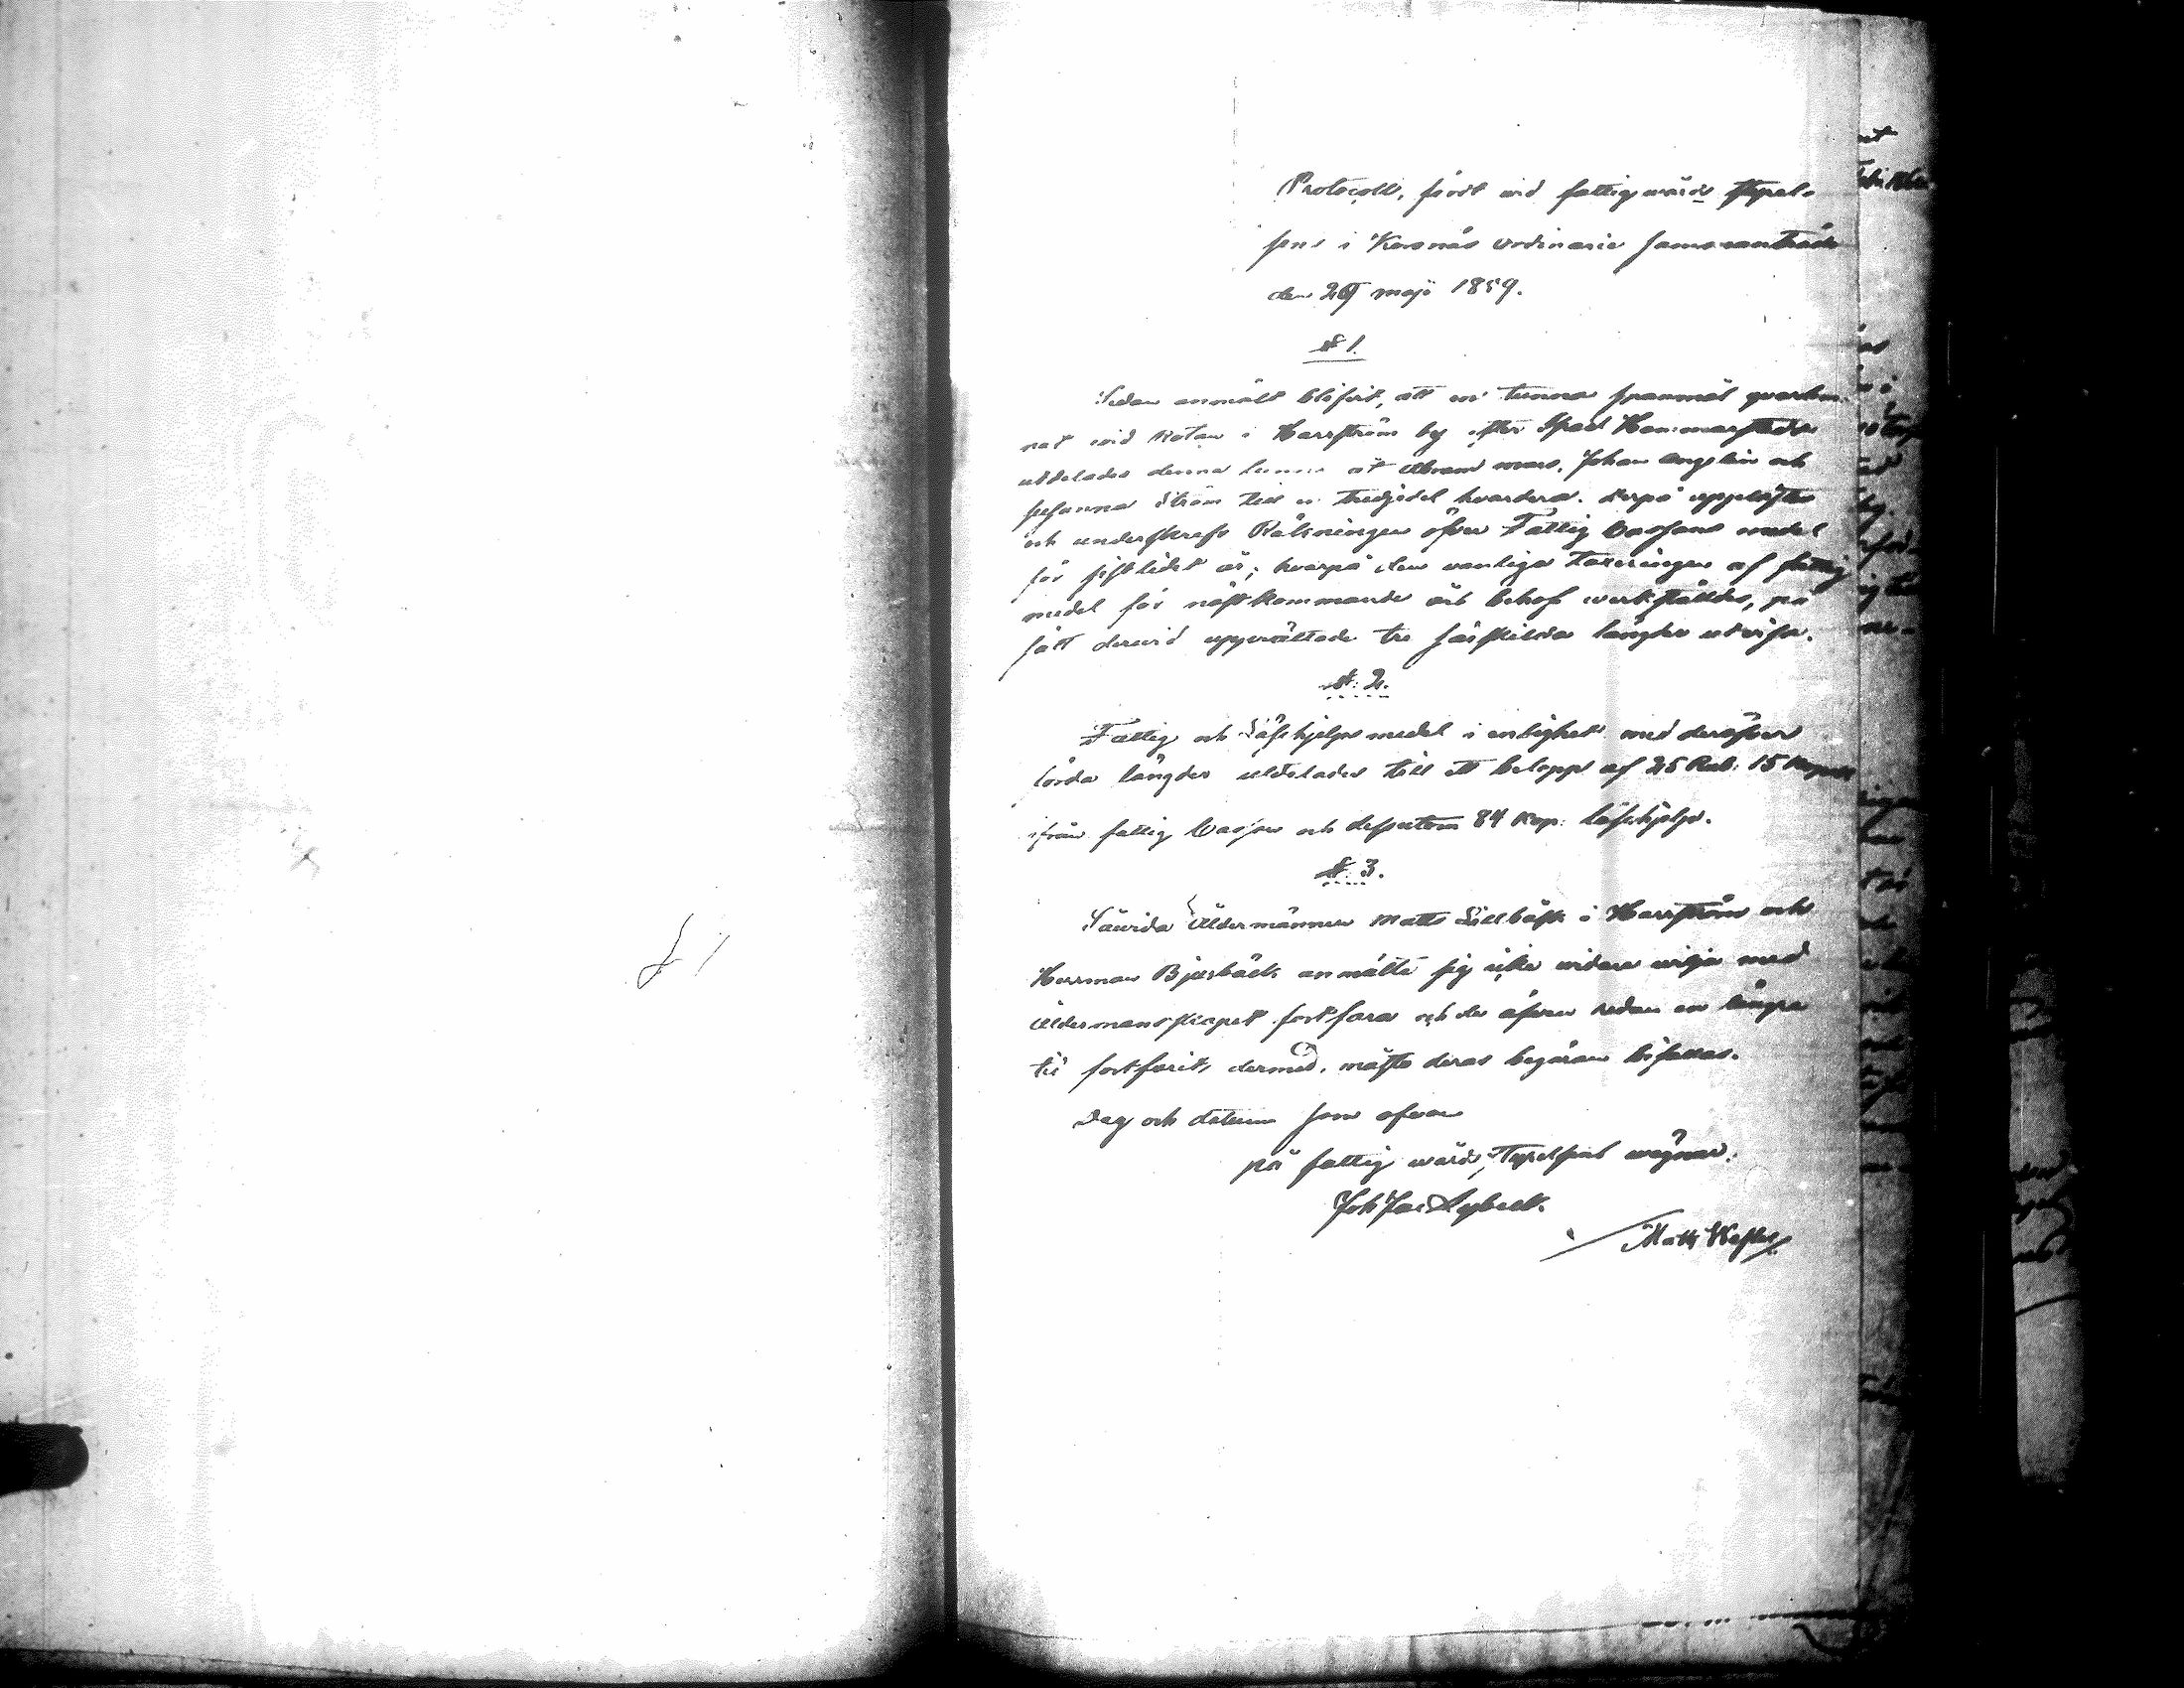 Protocoll, fördt vid fattigwårds styrel-
sens i Korsnäs ordinarie sammanträde
den 29 maji 1859.
§ 1.
Sedan anmält blifvit, att en tunna spannmål qvarlem-
nat wid Rotan i Harrström by efter Hammarstedt
utdelades denna tunna åt Abram Johan och
Susanna Ström till en tredjedel hvardera. Derpå upplästes
och underskrefs Räkningen öfver Fattig Cassans medel
för sistlidet år; hvarpå den vanliga taxeringen af fattig
medel för nästkommande års behof werkställdes, på
sätt derwid upprättade tre särskilda längder utvisa.
§. 2.
Fattig och Läsehjelps medel i enlighet med deröfver
förda längder utdelades till ett belopp af 25 Rub. 15 Kopek
ifrån fattig Cassan och dessutom 84 Kop. läsehjelp.
§. 3.
Såwida Åldermännen Matts Lillbäck i Harrström och
Herrman Bjurbäck anmälte sig icke widare wilja med
Åldermanskapet fortfara och de äfven redan en längre
tid fortfarit dermed, måste deras begäran bifallas.
Dag och datum som ofvan
på fattig wårds styrelsens wägnar.
Joh Jac Nybeck.
Matts
§ 1